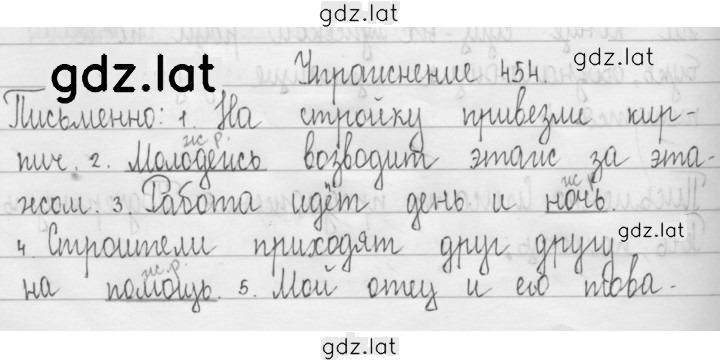 gdz.lat
Упражнение 454.
gdz.lat
gdz.lat
Письменно: 1. На стройку привезли кир-
ж.р.
пич. 2. Молодежь возводит этаж за эта-
ж.
жом. 3. Работа идёт день и ночь.
gdz.lat
4. Строители приходят друг другу
ж.р.
на помощь. 5. Мой отец и его това-
gdz.lat